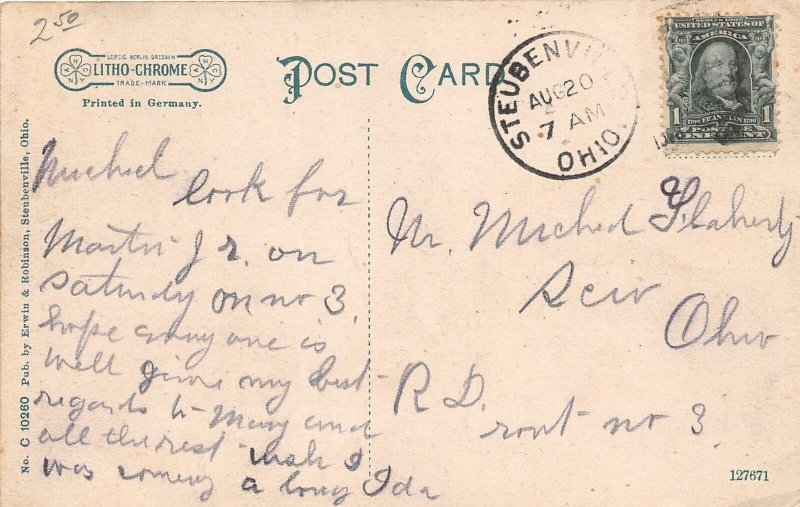 2.50
LEIPZIG BERLIN DRESDEN
LITHO-CHROME
TRADE-MARK
Printed in Germany.
POST CARD
STEUBENVILLE
AUG 20
7 AM
OHIO
SERIES 1902
UNITED STATES OF
AMERICA
FRANKLIN
POSTAGE
1 ONE CENT 1
No. C 10260 Pub. by Erwin & Robinson, Steubenville, Ohio.
Micheal look for
Martin Jr. on
Saturday on no 3.
hope every one is
well give my best
regards to Mary and
all the rest wish I
was coming a long Ida
Mr. Micheal Flaherty
Scio
Ohio
R. D.
rout no 3.
127671